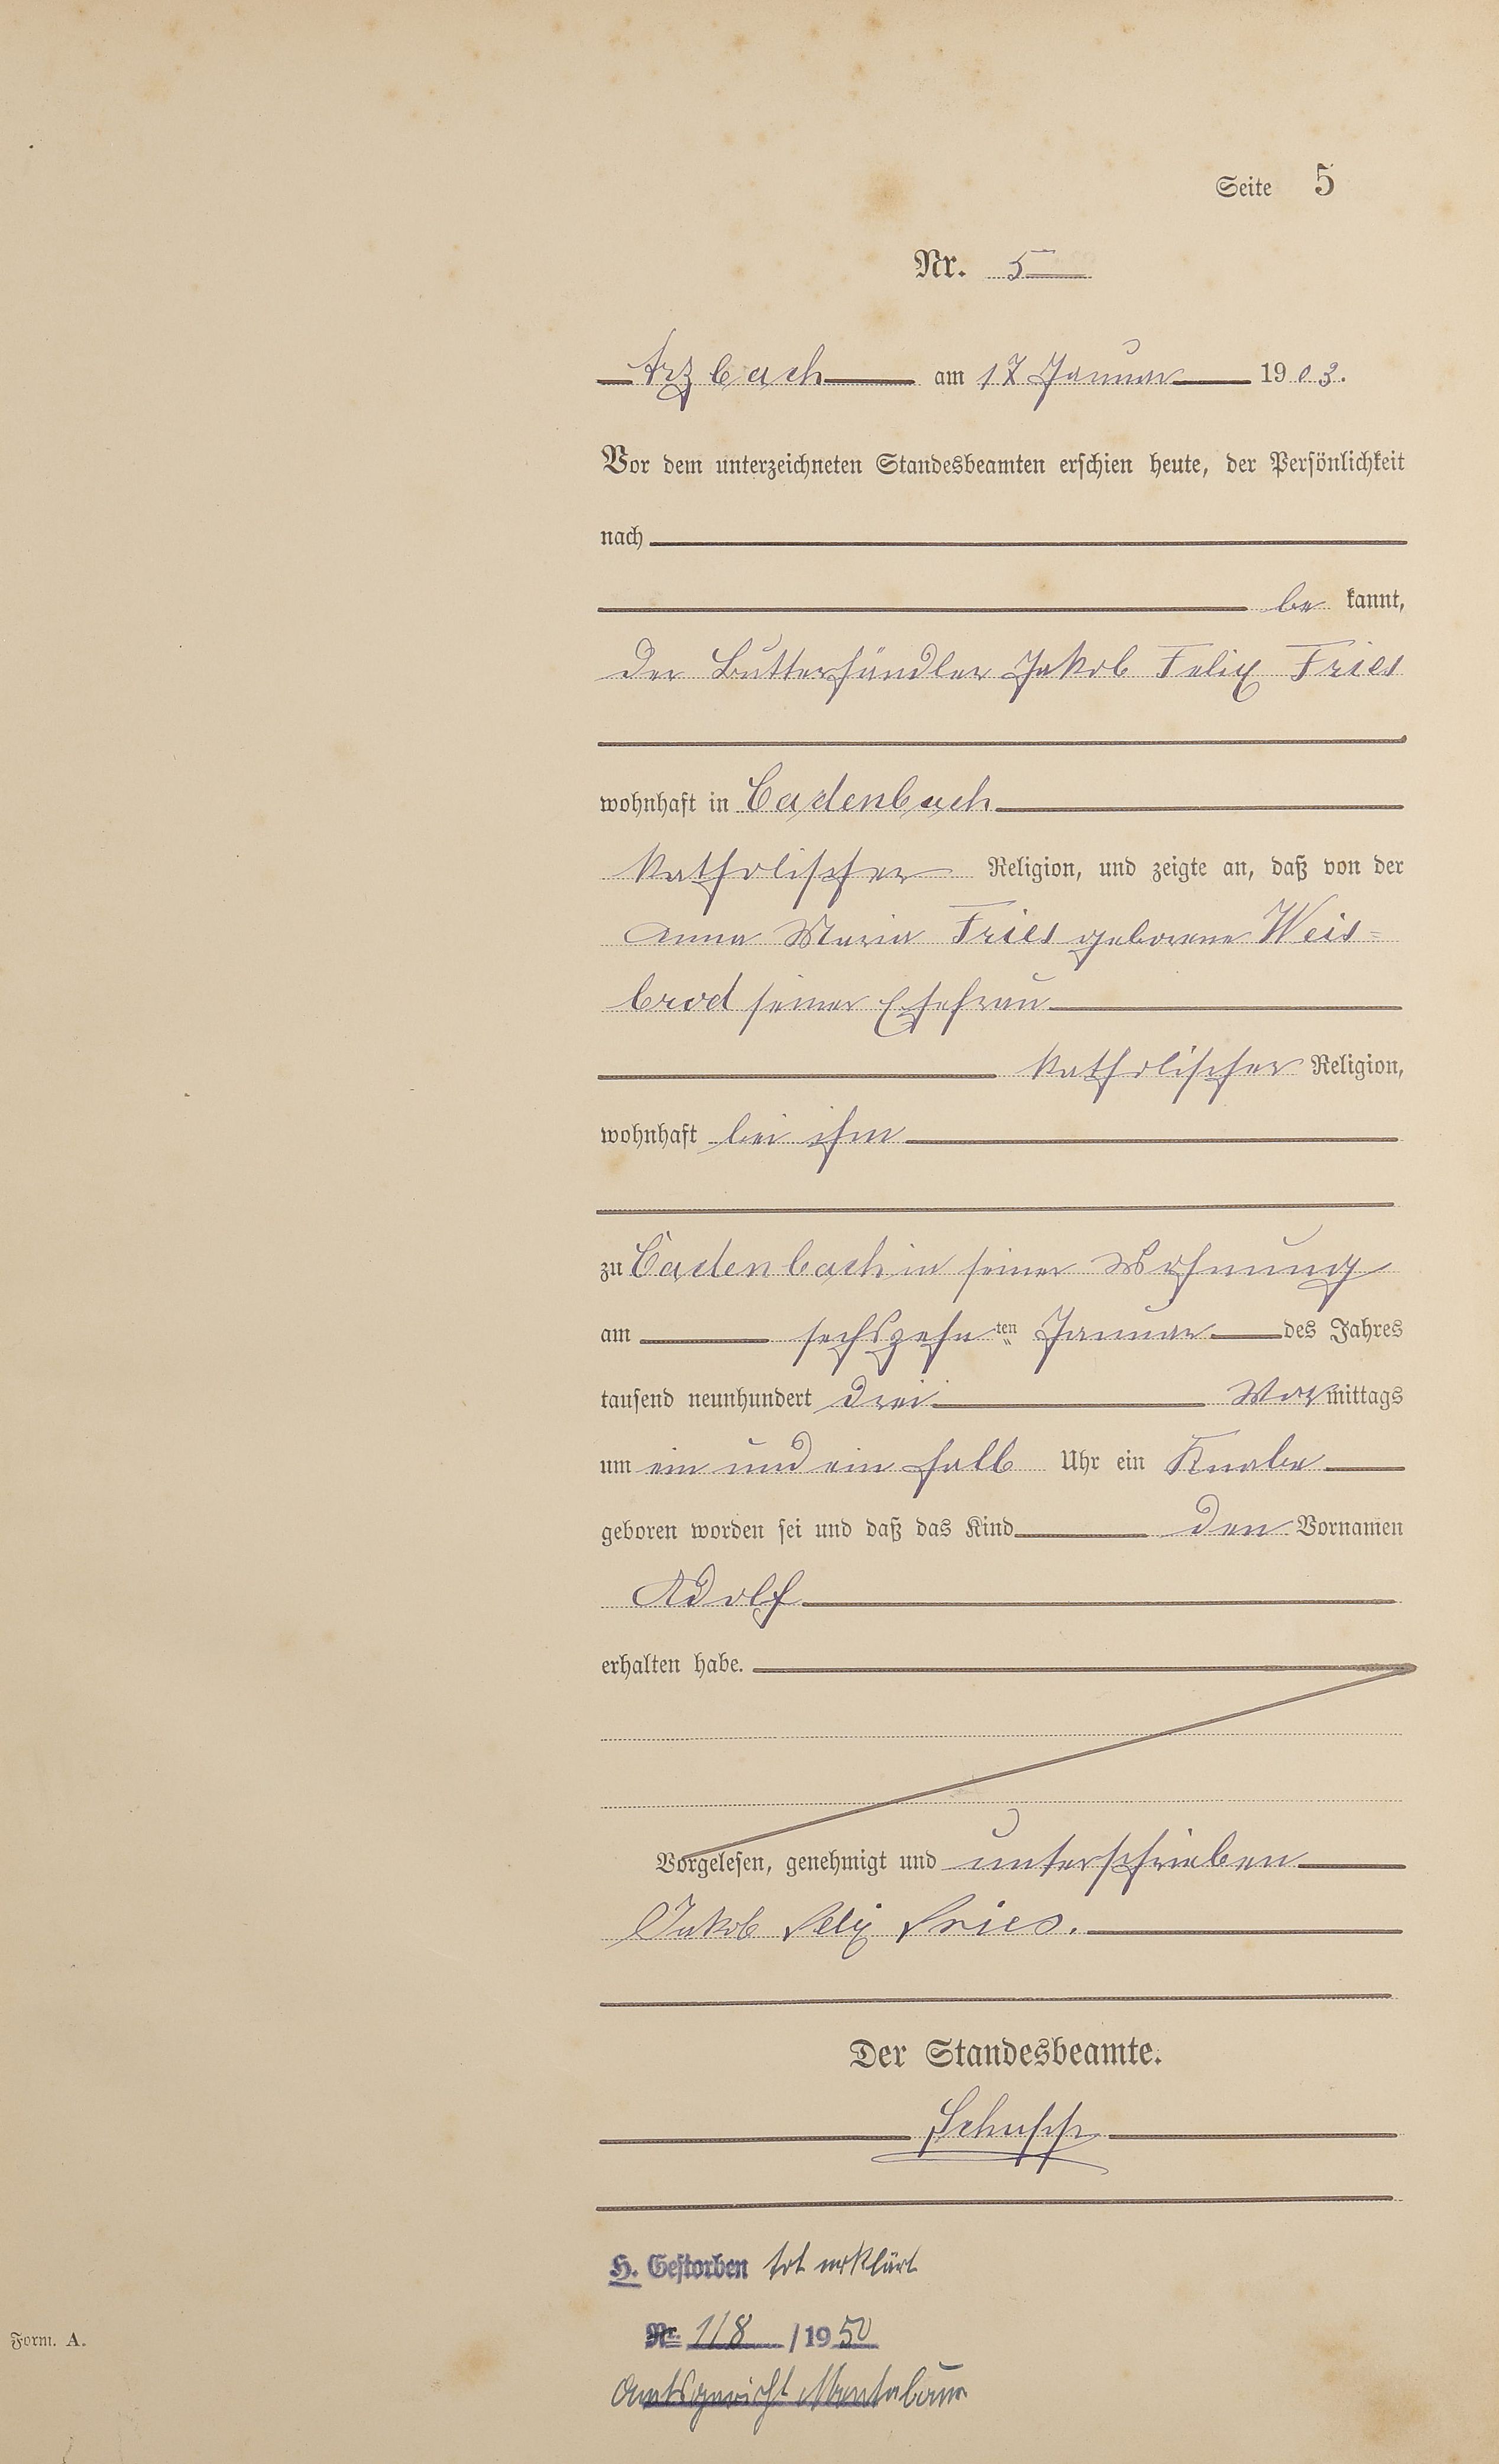 Seite 5
Nr. 5
Arzbach am 17 Januar 1903.
Vor dem unterzeichneten Standesbeamten erschien heute, der Persönlichkeit
nach
be kannt,
der Butterhändler Jakob Felix Fries
wohnhaft in Cadenbach
katholischer Religion, und zeigte an, daß von der
Anna Maria Fries geborene Weis=
brod seiner Ehefrau
katholischer Religion,
wohnhaft bei ihm
zu Cadenbach in seiner Wohnung
am sechszehnten Januar des Jahres
tausend neunhundert drei Vormittags
um ein und ein halb Uhr ein Knabe
geboren worden sei und daß das Kind den Vornamen
Adolf
erhalten habe.
Vorgelesen, genehmigt und unterschrieben
Jakob Felix Fries.
Der Standesbeamte.
Schupp
H. Gestorben tot erklärt
Nr. 118 / 1950
Form. A.
Amtsgericht Montabaur